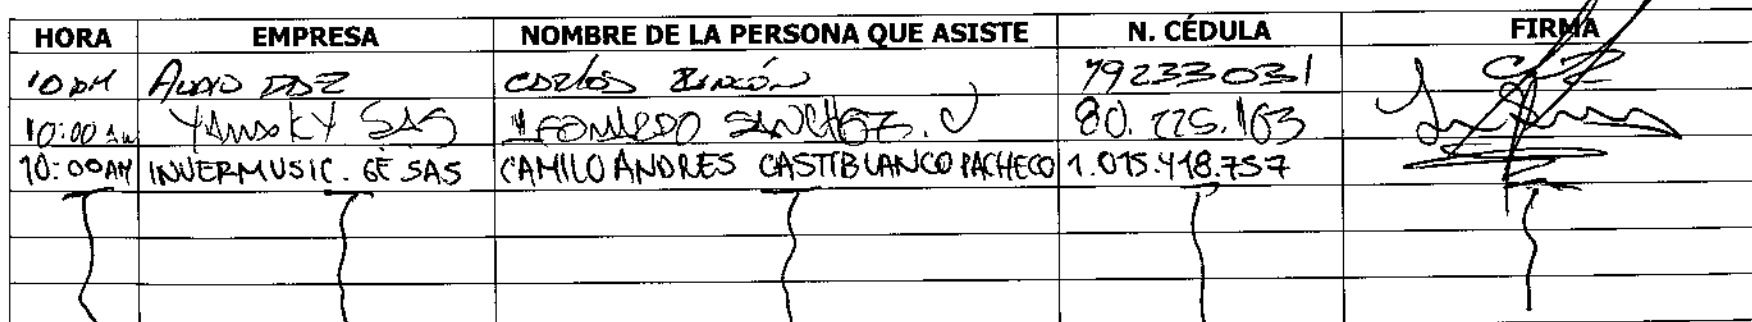 HORA EMPRESA NOMBRE DE LA PERSONA QUE ASISTE N. CÉDULA FIRMA
Audio Carlos Rincón 79233031
10:00 am YAMAKY SAS LEONARDO SANCHEZ. V 80.725.163
10:00AM INVERMUSIC. GE SAS CAMILO ANDRES CASTIBLANCO PACHECO 1.015.418.757